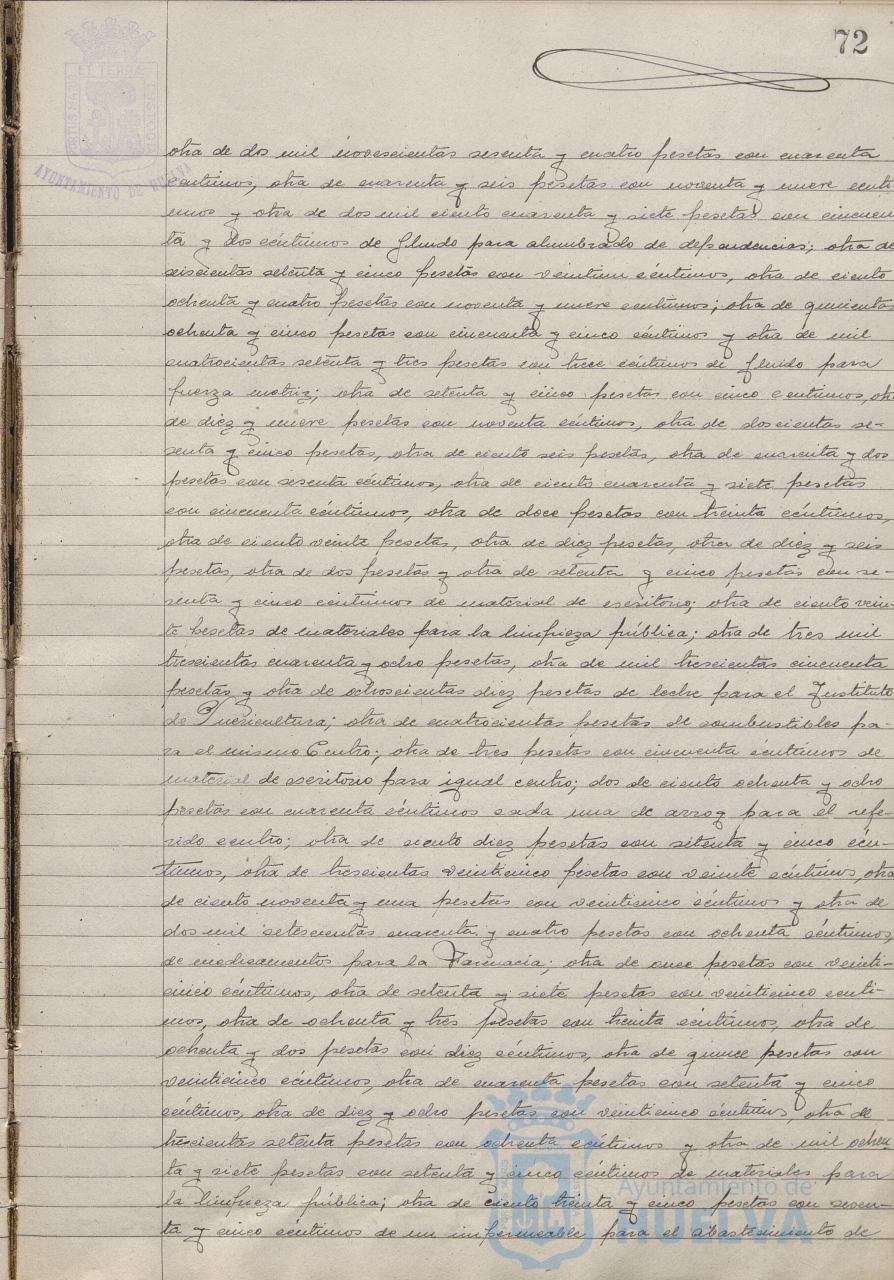 72
PORTUS MARIS ET TERRÆ CUSTODIA
AYUNTAMIENTO DE HUELVA
otra de dos mil novescientas sesenta y cuatro pesetas con cuarenta
céntimos, otra de cuarenta y seis pesetas con noventa y nueve cénti-
mos y otra de dos mil ciento cuarenta y siete pesetas con cincuen
ta y dos céntimos de fluido para alumbrado de dependencias; otra de
seiscientas setenta y cinco pesetas con veintiun céntimos, otra de ciento
ochenta y cuatro pesetas con noventa y nueve céntimos; otra de quinientas
ochenta y cinco pesetas con cincuenta y cinco céntimos y otra de mil
cuatrocientas setenta y tres pesetas con trece céntimos de fluido para
fuerza motriz; otra de setenta y cinco pesetas con cinco céntimos, otra
de diez y nueve pesetas con noventa céntimos, otra de doscientas se-
senta y cinco pesetas, otra de ciento seis pesetas, otra de cuarenta y dos
pesetas con sesenta céntimos, otra de ciento cuarenta y siete pesetas
con cincuenta céntimos, otra de doce pesetas con treinta céntimos,
otra de ciento veinte pesetas, otra de diez pesetas, otra de diez y seis
pesetas, otra de dos pesetas y otra de setenta y cinco pesetas con se-
senta y cinco céntimos de material de escritorio; otra de ciento vein-
te pesetas de materiales para la limpieza pública; otra de tres mil
trescientas cuarenta y ocho pesetas, otra de mil trescientas cincuenta
pesetas y otra de ochoscientas diez pesetas de leche para el Instituto
de Puericultura; otra de cuatrocientas pesetas de combustibles pa-
ra el mismo Centro; otra de tres pesetas con cincuenta céntimos de
material de escritorio para igual centro; dos de ciento ochenta y ocho
pesetas con cuarenta céntimos cada una de arroz para el refe-
rido centro; otra de ciento diez pesetas con setenta y cinco cén-
timos, otra de trescientas veinticinco pesetas con veinte céntimos, otra
de ciento noventa y una pesetas con veinticinco céntimos y otra de
dos mil setescientas cuarenta y cuatro pesetas con ochenta céntimos,
de medicamentos para la Farmacia; otra de once pesetas con veinti-
cinco céntimos, otra de setenta y siete pesetas con veinticinco cénti-
mos, otra de ochenta y tres pesetas con treinta céntimos, otra de
ochenta y dos pesetas con diez céntimos, otra de quince pesetas con
veinticinco céntimos, otra de cuarenta pesetas con setenta y cinco
céntimos, otra de diez y ocho pesetas con veinticinco céntimos, otra de
trescientas setenta pesetas con ochenta céntimos y otra de mil ochen
ta y siete pesetas con setenta y cinco céntimos de materiales para
la limpieza pública; otra de ciento treinta y cinco pesetas con sesen-
ta y cinco céntimos de un impermeable para el abastecimiento de
Ayuntamiento de
HUELVA